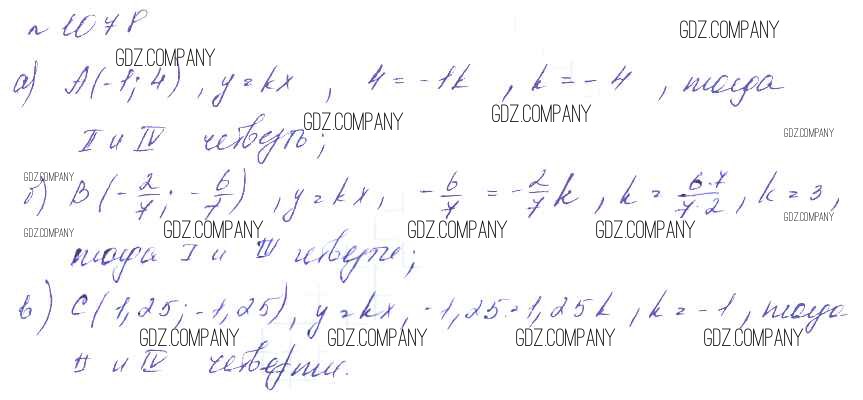 № 1078
GDZ.COMPANY GDZ.COMPANY
а) A(-1; 4), y = kx, 4 = -1k, k = -4, тогда
GDZ.COMPANY GDZ.COMPANY GDZ.COMPANY
II и IV четверть;
GDZ.COMPANY
б) B(-2/7; -6/7), y = kx, -6/7 = -2/7 k, k = 6·7/7·2, k = 3,
GDZ.COMPANY GDZ.COMPANY GDZ.COMPANY GDZ.COMPANY GDZ.COMPANY
тогда I и III четверти;
в) C(1,25; -1,25), y = kx, -1,25 = 1,25k, k = -1, тогда
GDZ.COMPANY GDZ.COMPANY GDZ.COMPANY GDZ.COMPANY
II и IV четверти.